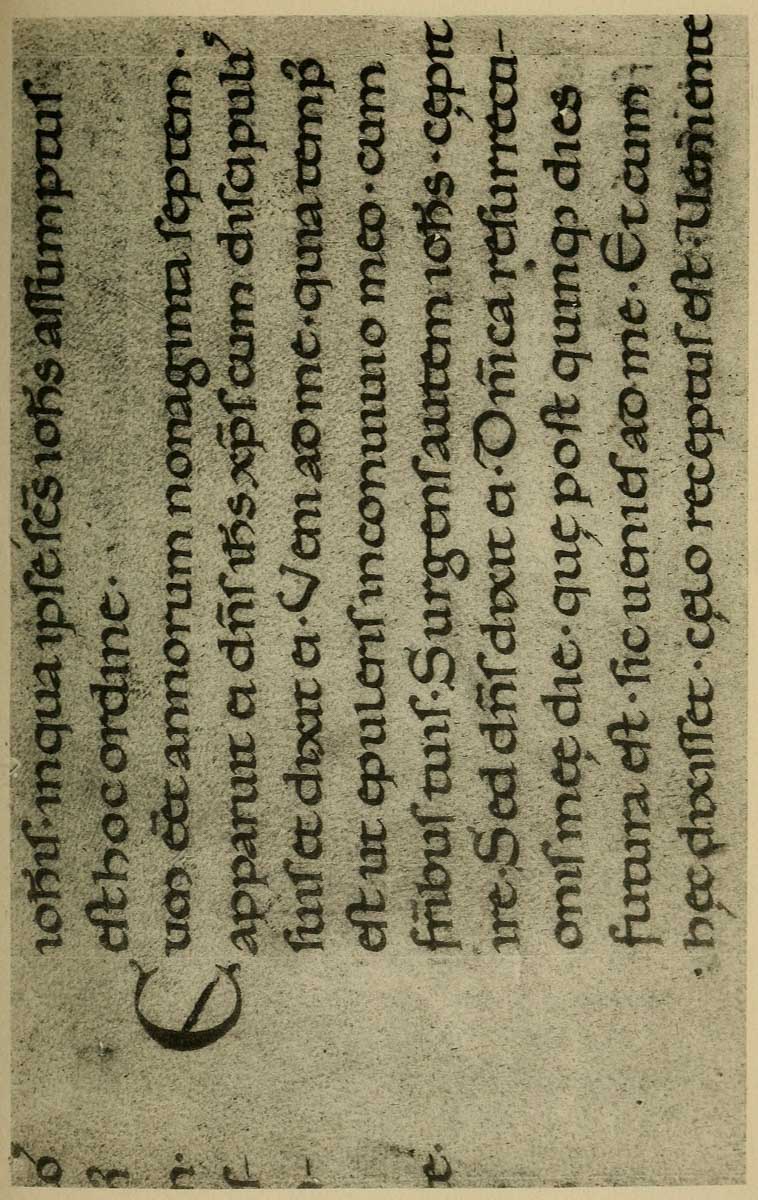 ioh̄is· inqua ipse sc̄s ioh̄s assumptus
est hoc ordine·
Cum eēt annorum nonaginta septem·
apparuit ei dn̄s ih̄s xp̄s cum discipuliꝰ
suis et dixit ei· Veni ad me· quia tempꝰ
est ut epuleris inconuiuio meo· cum
fr̄ibus tuis· Surgens autem ioh̄s· cępit
ire· Sed dn̄s dixit ei· Dn̄ica resurrecti-
onis meę die· quę post quinqꝫ dies
futura est· sic uenies ad me· Et cum
hęc dixisset· cęlo receptus est· Ueniente